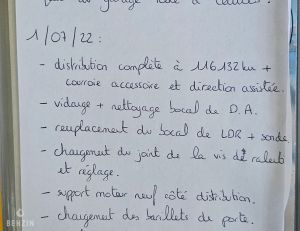 fait au garage
1/07/22 :
- distribution complète à 116132 km +
courroie accessoire et direction assistée.
- vidange + nettoyage bocal de D.A.
- remplacement du bocal de LDR + sonde.
- changement du joint de la vis de ralenti
et réglage.
- support moteur neuf côté distribution.
- changement des barillets de porte.
BENZIN